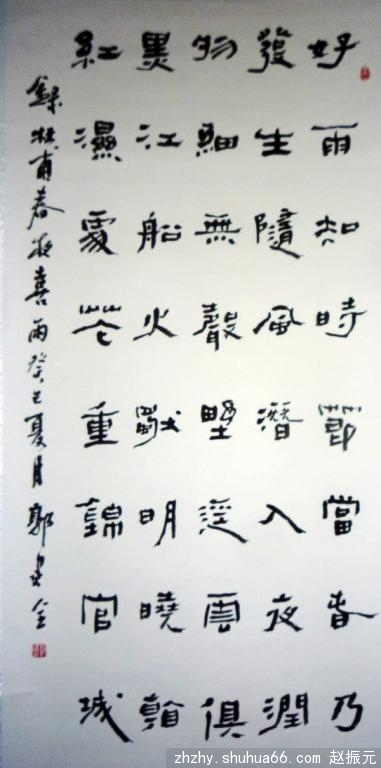 好雨知時節當春乃
發生隨風潛入夜潤
物細無聲野徑雲俱
黑江船火獨明曉看
紅濕處花重錦官城
錄杜甫春夜喜雨癸巳夏月郭
zhzhy.shuhua66.com 赵振元